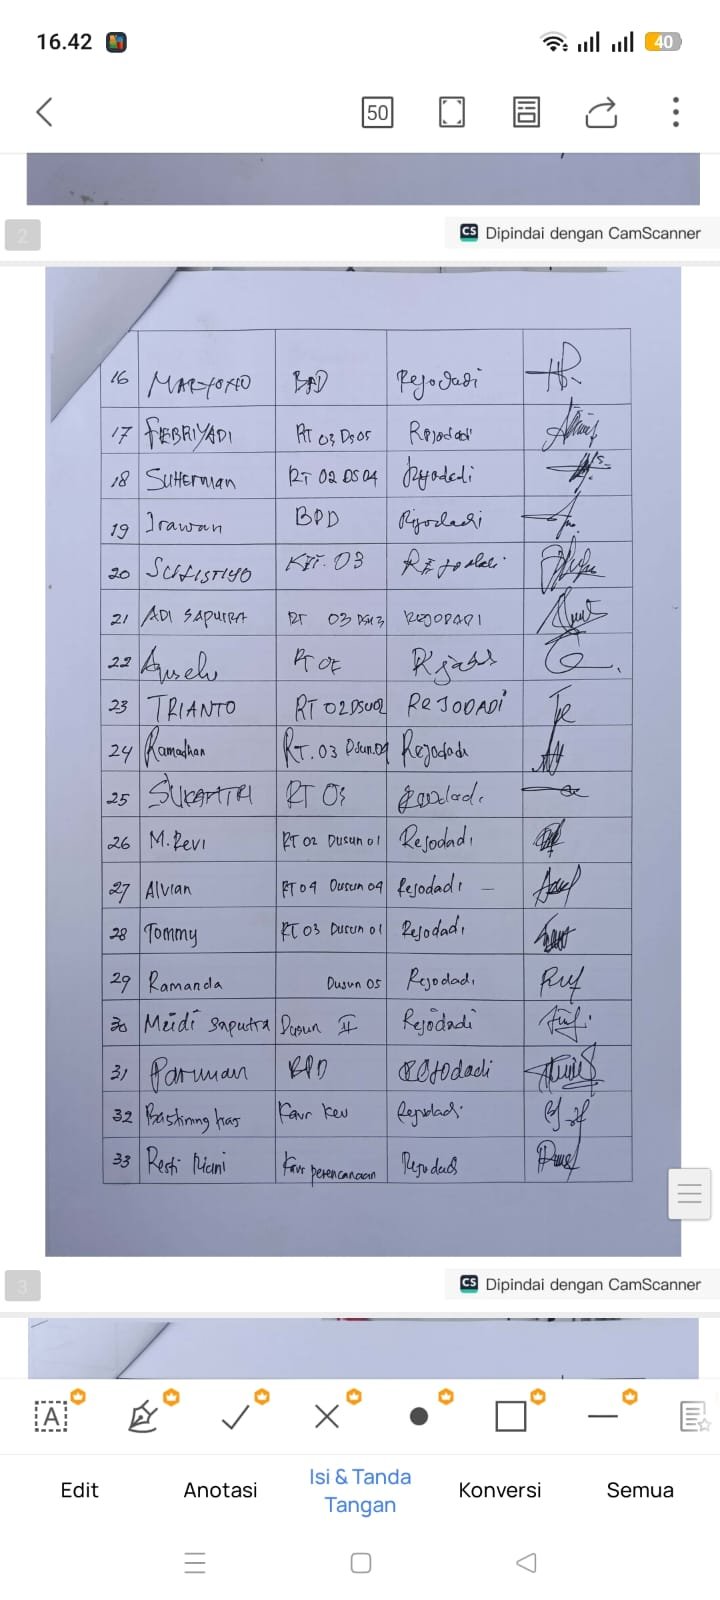 16.42
40
50
2
CS Dipindai dengan CamScanner
16 MARYONO BPD Rejodadi
17 FEBRIYADI RT 03 Ds 05 Rejodadi
18 SUHERMAN RT 02 DS 04 Rejodadi
19 Irawan BPD Rejodadi
20 SULISTIYO 03 Rejodadi
21 ADI SAPUTRA RT 03 REJODADI
22 RT
23 TRIANTO RT 02 DSU02 REJODADI
24 Ramadhan RT.03 Dsun.04 Rejodadi
25 RT 03 Rejodadi
26 M. Revi RT 02 Dusun 01 Rejodadi
27 Alvian RT 04 Dusun 04 Rejodadi
28 Tommy RT 03 Dusun 01 Rejodadi
29 Ramanda Dusun 05 Rejodadi
30 Meidi Saputra Dusun II Rejodadi
31 Paruman BPD Rejodadi
32 Kaur Keu Rejodadi
33 Resti Kaur perencanaan Rejodadi
3
CS Dipindai dengan CamScanner
A
Edit
Anotasi
Isi & Tanda
Tangan
Konversi
Semua